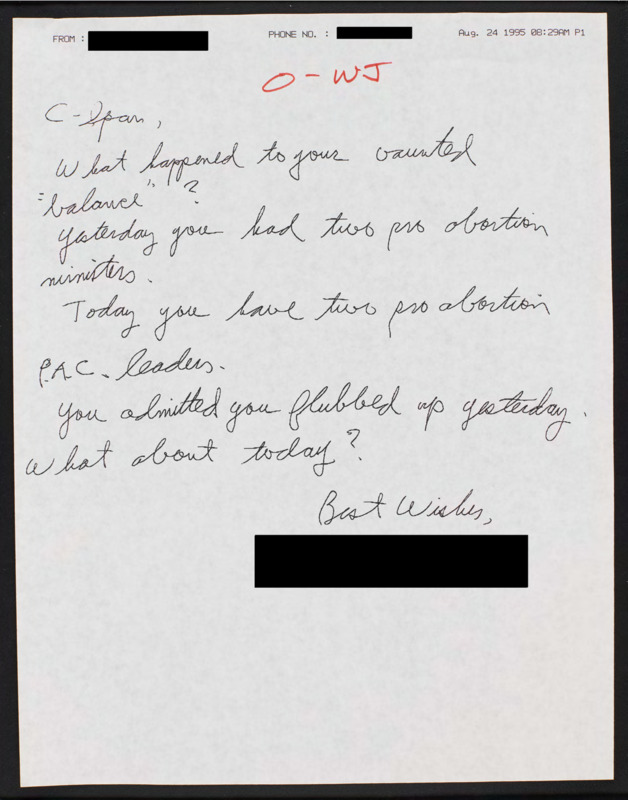 FROM :
PHONE NO. :
Aug. 24 1995 08:29AM P1
O-WJ
C-Span,
What happened to your vaunted
"balance"?
Yesterday you had two pro abortion
ministers.
Today you have two pro abortion
P.A.C. leaders.
You admitted you flubbed up yesterday.
What about today?
Best Wishes,